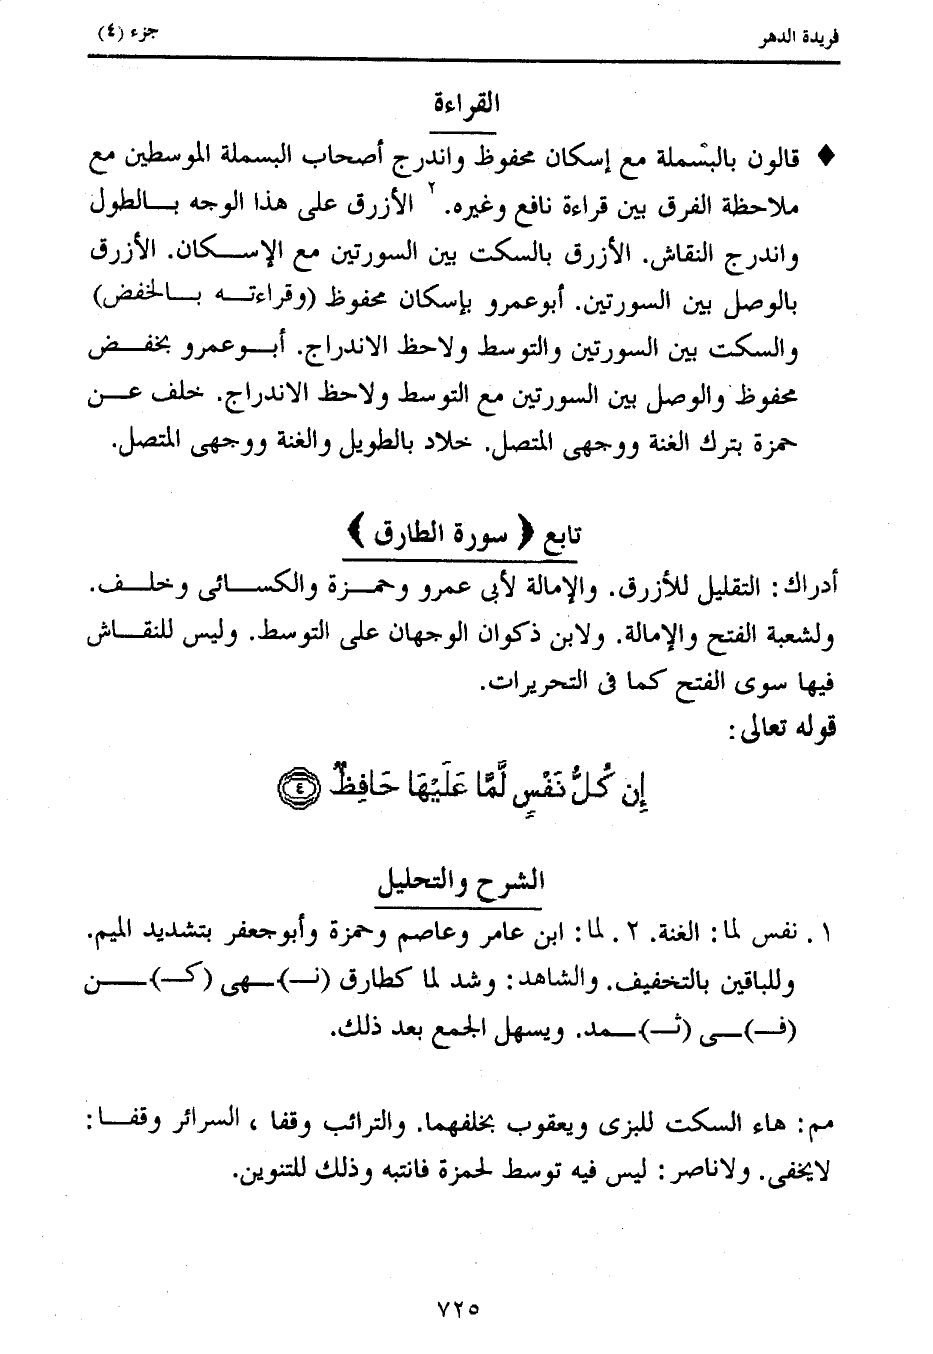 فريدة الدهر
جزء (٤)
القراءة
♦ قالون بالبسملة مع إسكان محفوظ واندرج أصحاب البسملة الموسطين مع
ملاحظة الفرق بين قراءة نافع وغيره.٢ الأزرق على هذا الوجه بالطول
واندرج النقاش. الأزرق بالسكت بين السورتين مع الإسكان. الأزرق
بالوصل بين السورتين. أبوعمرو بإسكان محفوظ (وقراءته بالخفض)
والسكت بين السورتين والتوسط ولاحظ الاندراج. أبوعمرو بخفض
محفوظ والوصل بين السورتين مع التوسط ولاحظ الاندراج. خلف عن
حمزة بترك الغنة ووجهى المتصل. خلاد بالطويل والغنة ووجهى المتصل.
تابع ﴿ سورة الطارق ﴾
أدراك: التقليل للأزرق. والإمالة لأبى عمرو وحمزة والكسائى وخلف.
ولشعبة الفتح والإمالة. ولابن ذكوان الوجهان على التوسط. وليس للنقاش
فيها سوى الفتح كما فى التحريرات.
قوله تعالى:
إِن كُلُّ نَفْسٍ لَّمَّا عَلَيْهَا حَافِظٌ ٤
الشرح والتحليل
١. نفس لما: الغنة. ٢. لما: ابن عامر وعاصم وحمزة وأبوجعفر بتشديد الميم.
وللباقين بالتخفيف. والشاهد: وشد لما كطارق (نـ)ـهى (كـ)ـن
(فـ)ـى (ثـ)ـمد. ويسهل الجمع بعد ذلك.
مم: هاء السكت للبزى ويعقوب بخلفهما. والترائب وقفا ، السرائر وقفا:
لايخفى. ولاناصر: ليس فيه توسط لحمزة فانتبه وذلك للتنوين.
٧٢٥